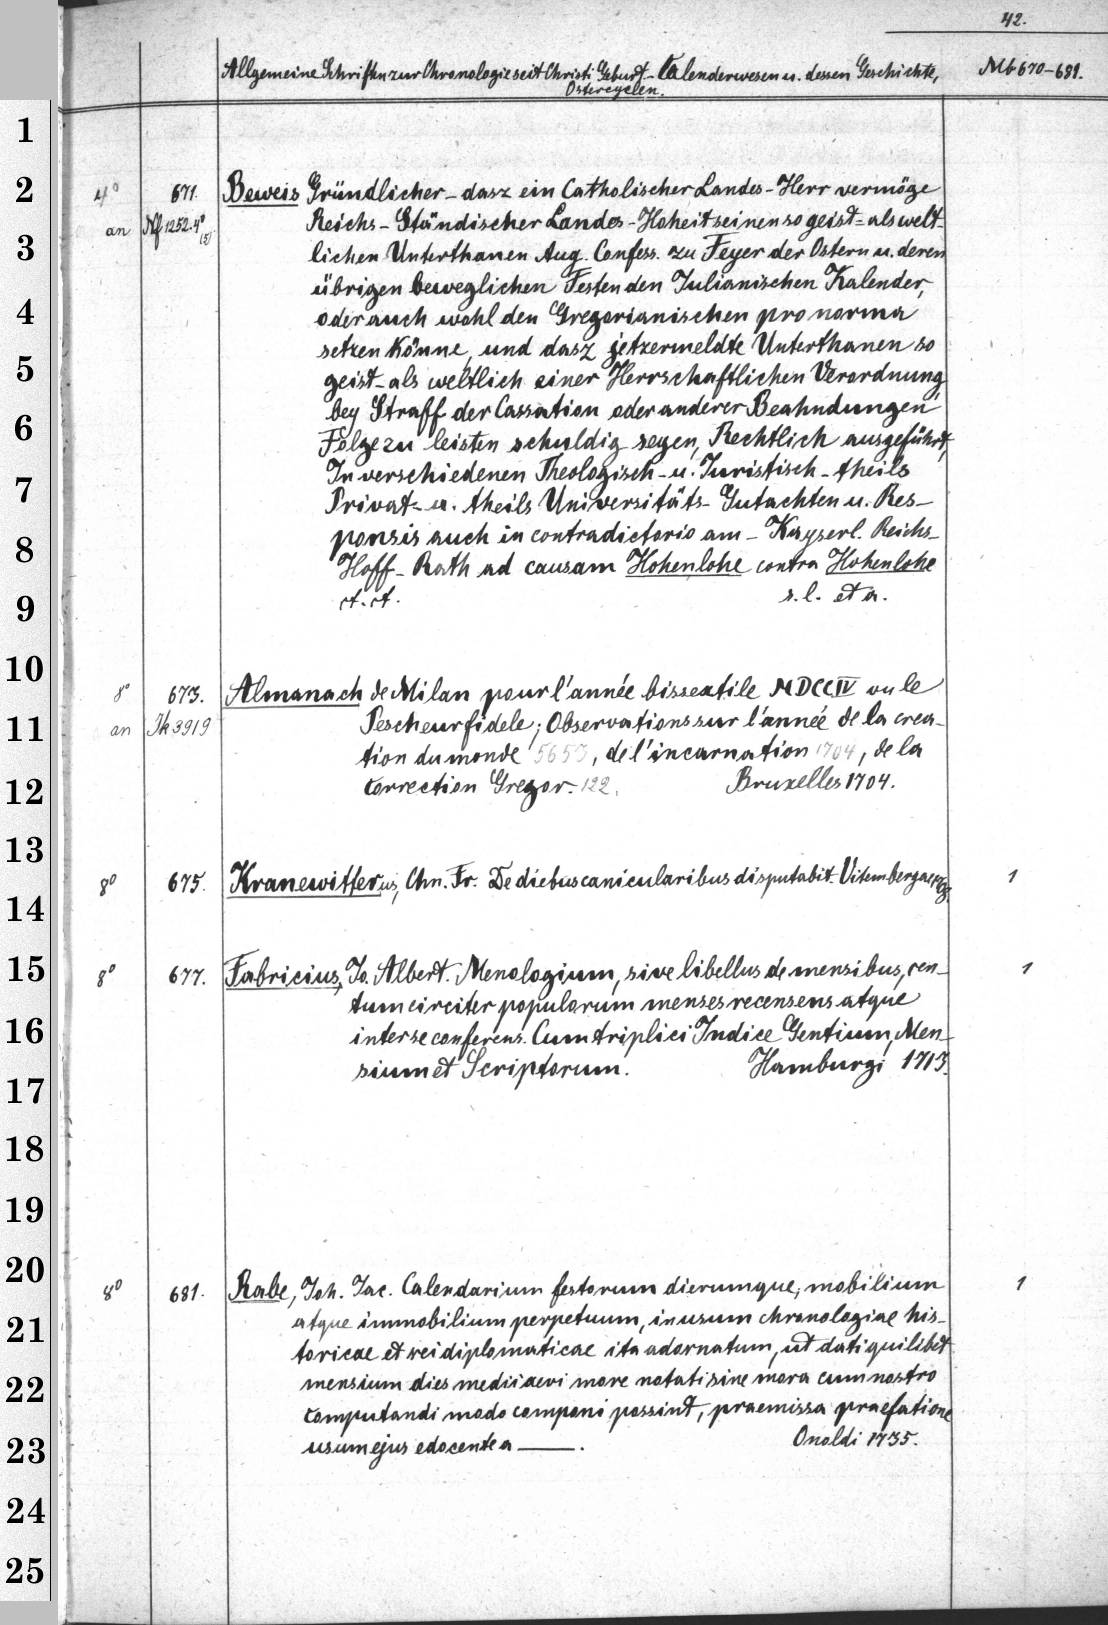 42.
Allgemeine Schriften zur Chronologie seit Christi Geburt - Calenderwesen u. dessen Geschichte, Mb 670-681.
Ostercyclen.
1
2
3
4
5
6
7
8
9
10
11
12
13
14
15
16
17
18
19
20
21
22
23
24
25
4° 671. Beweis Gründlicher - dasz ein Catholischer Landes-Herr vermöge
an Nf 1252.4° (5) Reichs-Ständischer Landes-Hoheit seinen so geist- als welt-
lichen Unterthanen Aug. Confess. zu Feyer der Ostern u. deren
übrigen beweglichen Festen den Julianischen Kalender,
oder auch wohl den Gregorianischen pro norma
setzen könne, und dasz jetzermeldte Unterthanen so
geist- als weltlich einer Herrschaftlichen Verordnung
bey Straff der Cassation oder anderer Beahndungen
Folge zu leisten schuldig seyen, Rechtlich ausgeführt,
In verschiedenen Theologisch- u. Juristisch- theils
Privat- u. theils Universitäts- Gutachten u. Res-
ponsis auch in contradictorio am - Kayserl. Reichs-
Hoff-Rath ad causam Hohenlohe contra Hohenlohe
ct. ct. s. l. et a.
8° 673. Almanach de Milan pour l'année bissextile MDCCIV ou le
an Jk 3919 Pescheur fidele; Observations sur l'année de la crea-
tion du monde 5653, de l'incarnation 1704, de la
correction Gregor. 122. Bruxelles 1704.
8° 675. Kranewitterus, Chn. Fr. De diebus canicularibus disputabit. Vitembergae 1
8° 677. Fabricius, Jo. Albert. Menologium, sive libellus de mensibus, cen- 1
tum circiter populorum menses recensens atque
inter se conferens. Cum triplici Indice Gentium, Men-
sium et Scriptorum. Hamburgi 1713.
8° 681. Rabe, Joh. Jac. Calendarium festorum dierumque, mobilium 1
atque immobilium perpetuum, in usum chronologiae his-
toricae et rei diplomaticae ita adornatum, ut dati quilibet
mensium dies medii aevi more notati sine mora cum nostro
computandi modo componi possint, praemissa praefatione
usum ejus edocente a ——. Onoldi 1735.